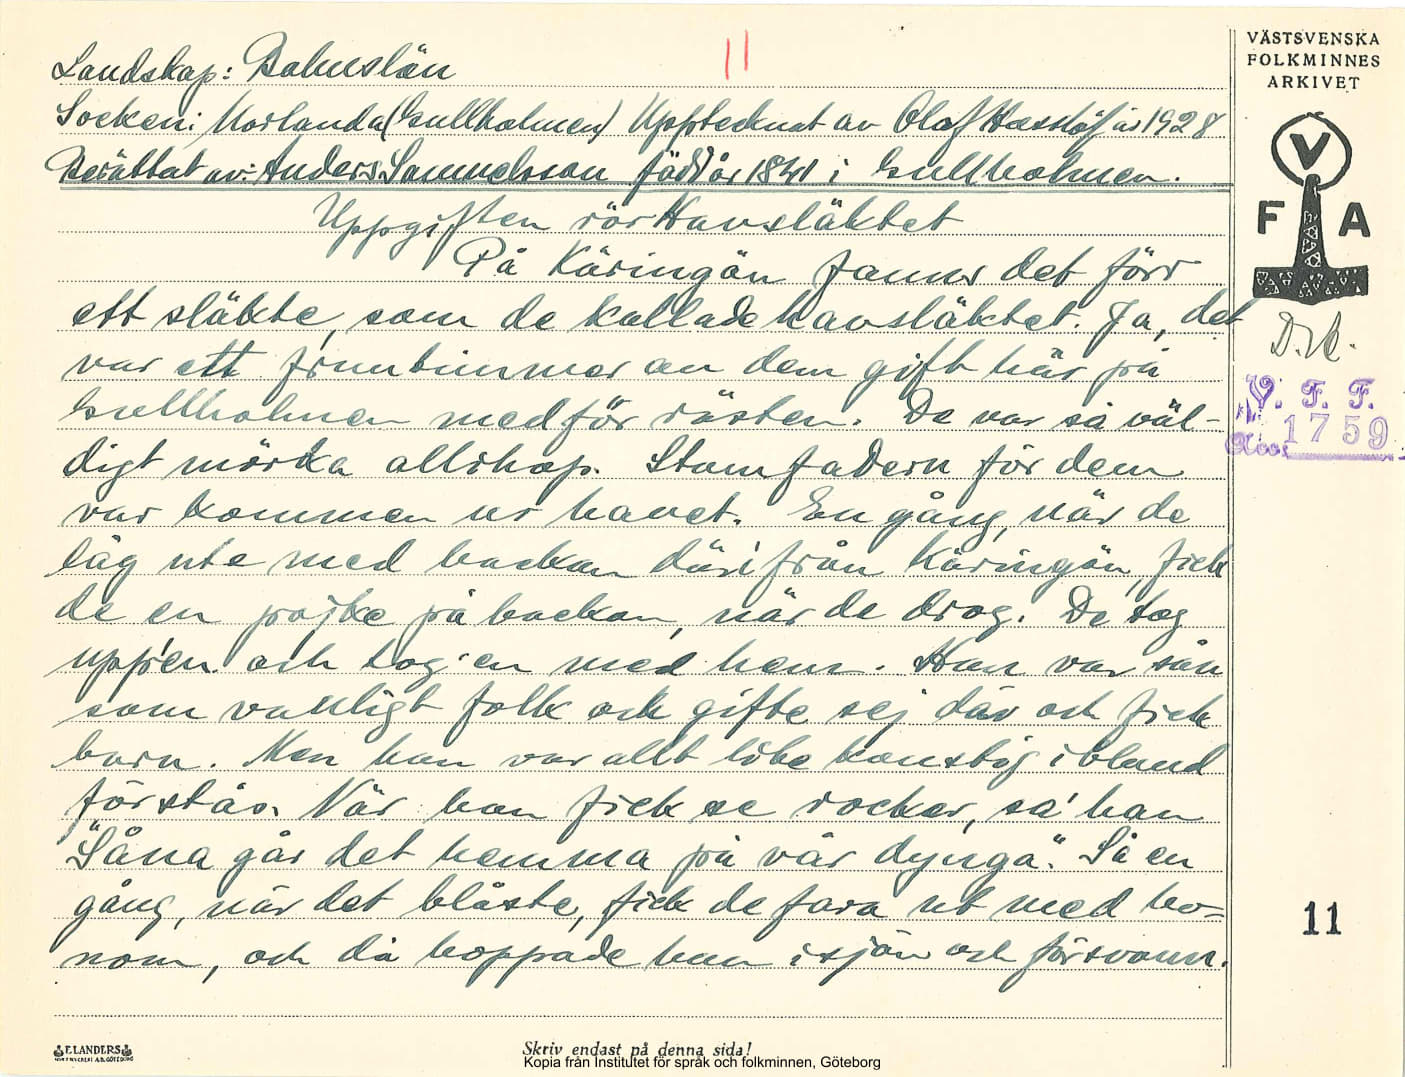 11
Landskap: Bohuslän
Socken: Morlanda (Gullholmen) Upptecknat av Olof Hasslöf år 1928
Berättat av: Anders Samuelsson född år 1841 i Gullholmen.
Uppgiften rör Havsläktet
På Käringön fanns det förr
ett släkte, som de kallade havsläktet. Ja, det
var ett fruntimmer av dem gift här på
Gullholmen medför rästen. De var så väl-
digt mörka allihop. Stamfadern för dem
var kommen ur havet. En gång, när de
låg ute med backan där ifrån Käringön, fick
de en pojke på backan, när de drog. De tog
upp'en och tog'en med hem. Han var sån
som vanligt folk och gifte sej där och fick
barn. Men han var allt lite konstig ibland
förstås. När han fick se rockar, sa' han
"Såna går det hemma på vår dynga". Så en
gång, när det blåste, fick de fara ut med ho-
nom, och då hoppade han i sjön och försvann.
VÄSTSVENSKA
FOLKMINNES
ARKIVET
V
F A
V. F. F.
1759
11
ELANDERS
Skriv endast på denna sida!
Kopia från Institutet för språk och folkminnen, Göteborg